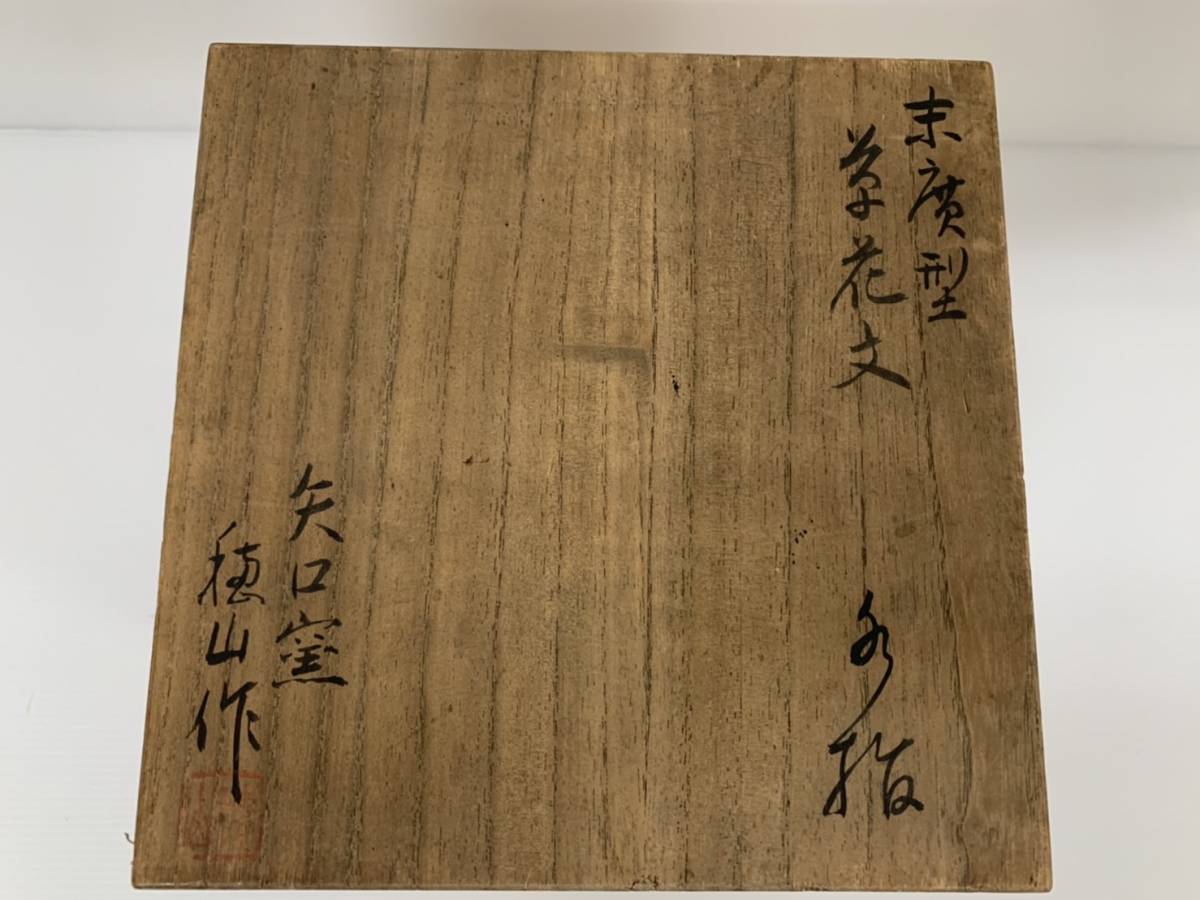 末廣型
草花文
水指
矢口窯
穂山作